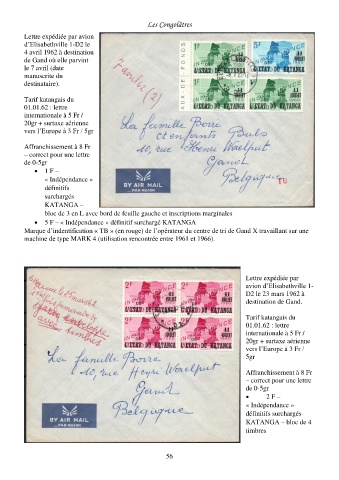 Les Congolâtres
Lettre expédiée par avion
d'Elisabethville 1-D2 le
4 avril 1962 à destination
de Gand où elle parvint
le 7 avril (date
manuscrite du
destinataire).
Tarif katangais du
01.01.62 : lettre
internationale à 5 Fr /
20gr + surtaxe aérienne
vers l'Europe à 3 Fr / 5gr
Affranchissement à 8 Fr
– correct pour une lettre
de 0-5gr
• 1 F –
« Indépendance »
définitifs
surchargés
KATANGA –
bloc de 3 en L avec bord de feuille gauche et inscriptions marginales
• 5 F – « Indépendance » définitif surchargé KATANGA
AUX-DE-FONDS
1F
5F
11
JUILLET
DE L'ETAT DU KATANGA
7 avril 62 (2)
La famille Borre
et enfants
10, rue Henri Waelput
Gand
Belgique
TB
BY AIR MAIL
PAR AVION
Marque d'indentification « TB » (en rouge) de l'opérateur du centre de tri de Gand X travaillant sur une
machine de type MARK 4 (utilisation rencontrée entre 1961 et 1966).
2F
2F
11
JUILLET
DE L'ETAT DU KATANGA
avec timbres
La famille Borre
10, rue Henri Waelput
Gand
Belgique
BY AIR MAIL
PAR AVION
Lettre expédiée par
avion d'Elisabethville 1-
D2 le 23 mars 1962 à
destination de Gand.
Tarif katangais du
01.01.62 : lettre
internationale à 5 Fr /
20gr + surtaxe aérienne
vers l'Europe à 3 Fr /
5gr
Affranchissement à 8 Fr
– correct pour une lettre
de 0-5gr
• 2 F –
« Indépendance »
définitifs surchargés
KATANGA – bloc de 4
timbres
56